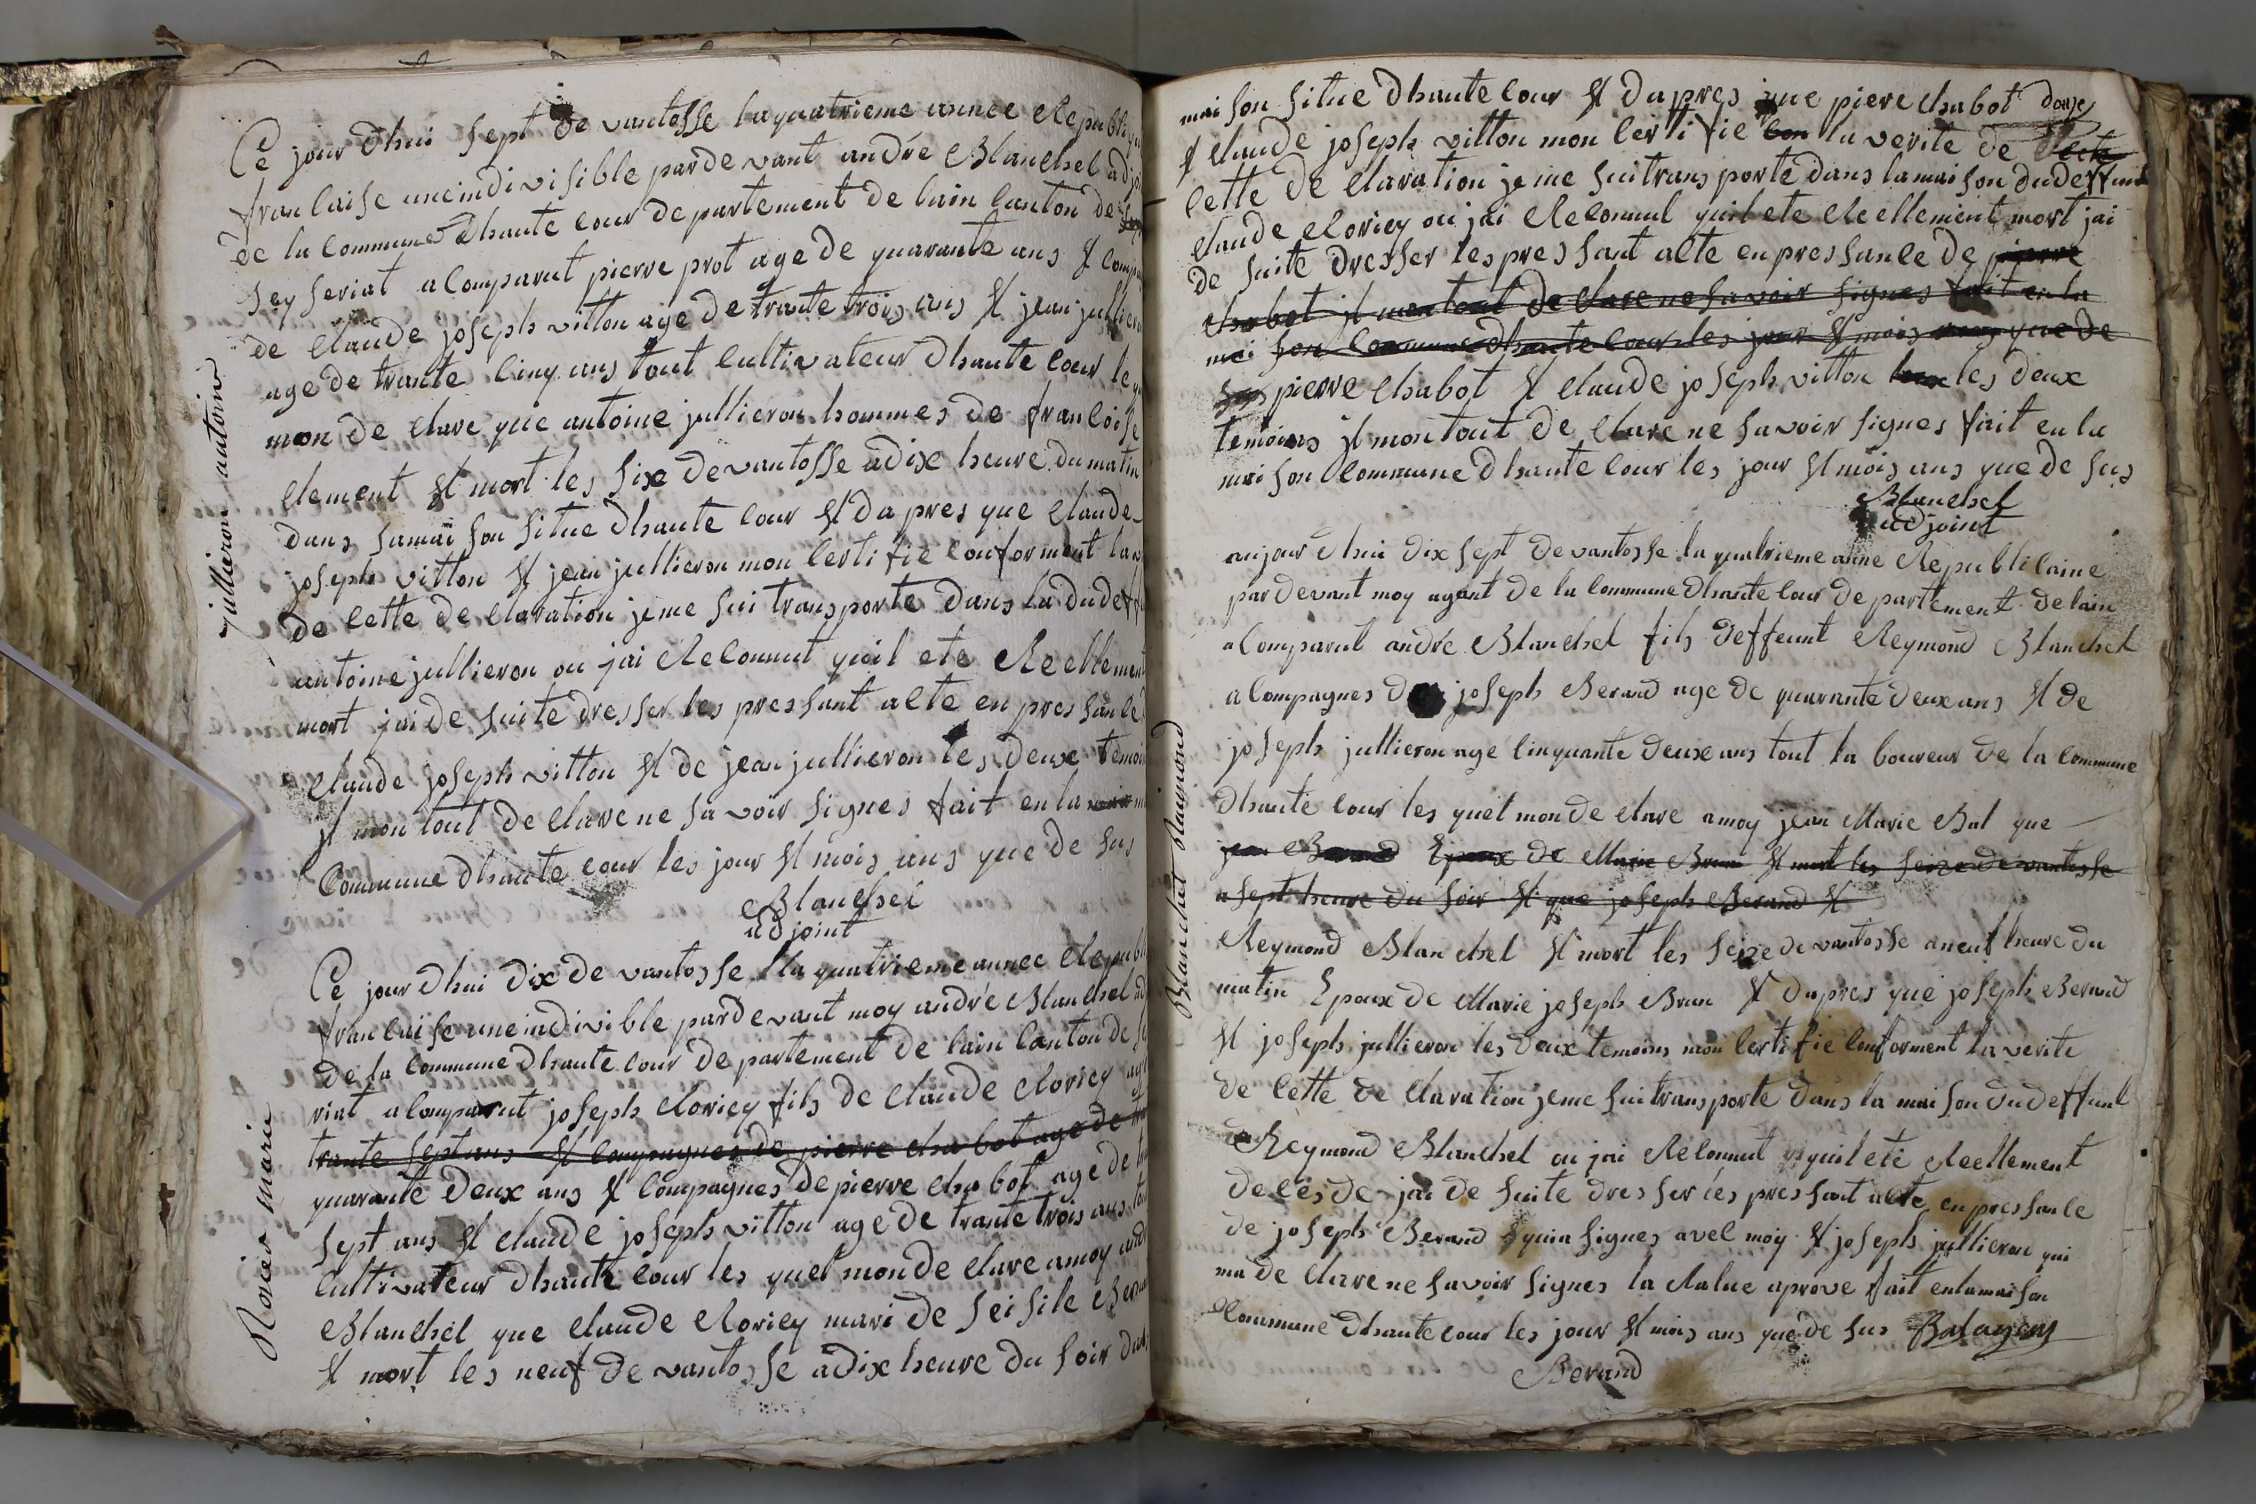 jullieron antoine
Ce jour dhui sept de vantosse la quatrieme annee Republi
francaise uneindivisible pardevant andré Blanchet adj
de la commune dhaute cour departement de lain canton de
Seyseriat a comparut pierre prot age de quarante ans et comp
de claude joseph vitton age de trante trois ans et jean jullieron
age de trante cinq ans tout cultivateur dhaute cour le
mon de clare que antoine jullieron hommes de francoise
clement et mort les six de vantosse a dix heure du matin
dans samaison situe dhaute cour et dapres que claude
joseph vitton et jean jullieron mon certifie conforment la
de cette de claration jeme sui transporte dans la dudeff
antoine jullieron ou jai Reconnut quil ete Reellement
mort jai de suite dresser les pressant acte en pressance
claude joseph vitton et de jean jullieron les deux temoin
il mon tout de clare ne savoir signes fait en la
Commune dhaute cour les jour et mois ans que de sus
Blanchet
adjoint
Roriez marie
Ce jour dhui dix de vantosse la quatrieme annee Republi
francaise uneindivible pardevant moy andré Blanchet ad
de la commune dhaute cour departement de lain canton de
riat a comparut joseph Roricy fils de claude Roricy age
trante sept ans et compagnes de pierre chabot age de
quarante deux ans et compagnes de pierre chabot age de
sept ans et claude joseph vitton age de trante trois ans
Cultivateur dhaute cour les quel mon de clare amoy and
Blanchet que claude Roricy mari de seisile
et mort les neuf de vantosse a dix heure du soir
maison situe dhaute cour et dapres que piere chabot
et claude joseph vitton mon certifie la verite de
cette de claration je me sui trans porte dans la maison dudeffunt
claude Roricy ou jai Reconnut quil ete Reellement mort jai
de suite dresser les pressant acte en pressance de pierre
chabot il mon tout de clare ne savoir signes fait en la
mai son Commune dhaute cour les jour et mois que de
sus pierre chabot et claude joseph vitton les deux
temoins il mon tout de clare ne savoir signes fait en la
mai son Commune dhaute cour les jour et mois ans que de sus
Blanchet
adjoint
Blanchet Raimond
aujour dhui dix sept de vantosse la quatrieme anne Republicaine
par devant moy agent de la commune dhaute cour departement de lain
a comparut andré Blanchet fils deffeunt Reymond Blanchet
a compagnes de joseph Beraud age de quarante deux ans et de
joseph jullieron age cinquante deux ans tout la boureur de la commune
dhaute cour les quel mon de clare amoy jean Marie Bal que
jean Beraud Epoux de Marie Brun et mort les seize de vantosse
a sept heure du soir et que joseph Beraud et
Reymond Blanchet et mort les seize de vantosse aneuf heure du
matin Epoux de Marie joseph Brun et dapres que joseph Beraud
et joseph jullieron les deux temoins mon certifie conforment la verite
de cette de claration jeme sui transporte dans la maison dudeffunt
Reymond Blanchet ou jai Reconnut quil ete Reellement
de ces de jai de suite dresser les pressant acte en pressance
de joseph Beraud quia signes avec moy et joseph jullieron qui
ma de clare ne savoir signes la Ralue aprove fait enlamaison
Commune dhaute cour les jour et mois ans que de sus Balagent
Beraud